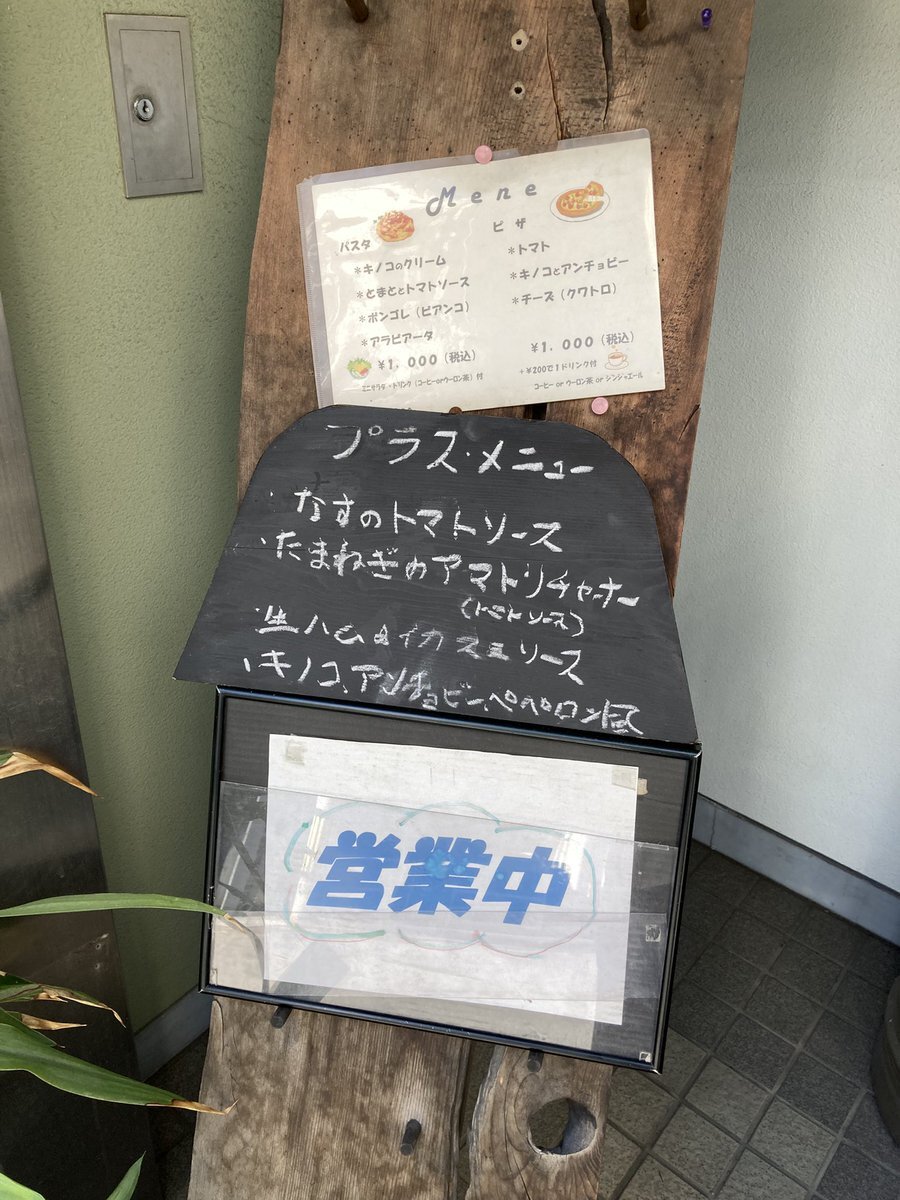 Mene
パスタ
*キノコのクリーム
*とまととトマトソース
*ボンゴレ（ビアンコ）
*アラビアータ
￥1．000（税込）
ミニサラダ・ドリンク（コーヒーorウーロン茶）付
ピザ
*トマト
*キノコとアンチョビー
*チーズ（クワトロ）
￥1．000（税込）
+￥200で1ドリンク付
コーヒー or ウーロン茶 or ジンジャエール
プラス・メニュー
・なすのトマトソース
・たまねぎのアマトリチャーナー
(トマトソース)
・生ハム&イカスミソース
・キノコ、アンチョビー、ペペロン風
営業中